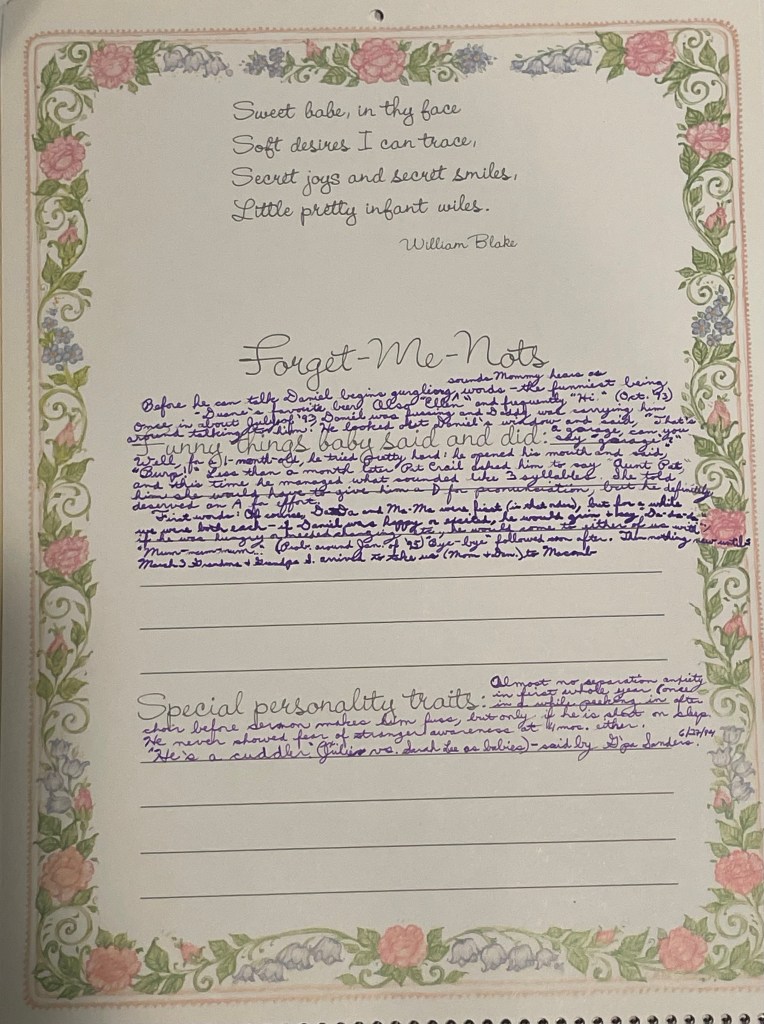 Sweet babe, in thy face
Soft desires I can trace,
Secret joys and secret smiles,
Little pretty infant wiles.
William Blake
Forget-Me-Nots
sounds Mommy hears as
Before he can talk Daniel begins gurgling words - the funniest being
- Duane's favourite beer. Also "Ellen" and frequently "Hi." (Oct. 93)
Once, in about July of '93 Daniel was fussing and Daddy was carrying him
around talking to him. He looked out Daniel's window and said, "That's
a garage, can you
Funny things baby said and did: say "garage"?"
Well, for 1-month-old, he tried pretty hard: he opened his mouth and said,
"Burp!" Less than a month later Pat Crail asked him to say "Aunt Pat,"
and this time he managed what sounded like 3 syllables. She told
him she would have to give him a D for pronunciation, but he definitely
deserved an A for effort.
First words: Of course, Da-Da and Ma-Ma were first (in that order), but for a while
we were both each - if Daniel was happy or excited, he would grin & say, Da-da-da
if he was hungry or needed changing etc., he would come to either of us with
"Mum-mum-mum." (Prob. around Jan. of '95) "Bye-bye" followed soon after. Then nothing new until
March 3 Grandma & Grandpa S. arrived to take us (Mom & Dan.) to Macomb
Special personality traits:
Almost no separation anxiety
in first whole year (once
in a while peeking in after
choir before sermon makes him fuss, but only if he is short on sleep.
He never showed fear of stranger awareness at 4 mos. either.
"He's a cuddler" (Julie vs. Sarah Lee as babies) - said by G'pa Sanders. 6/27/94